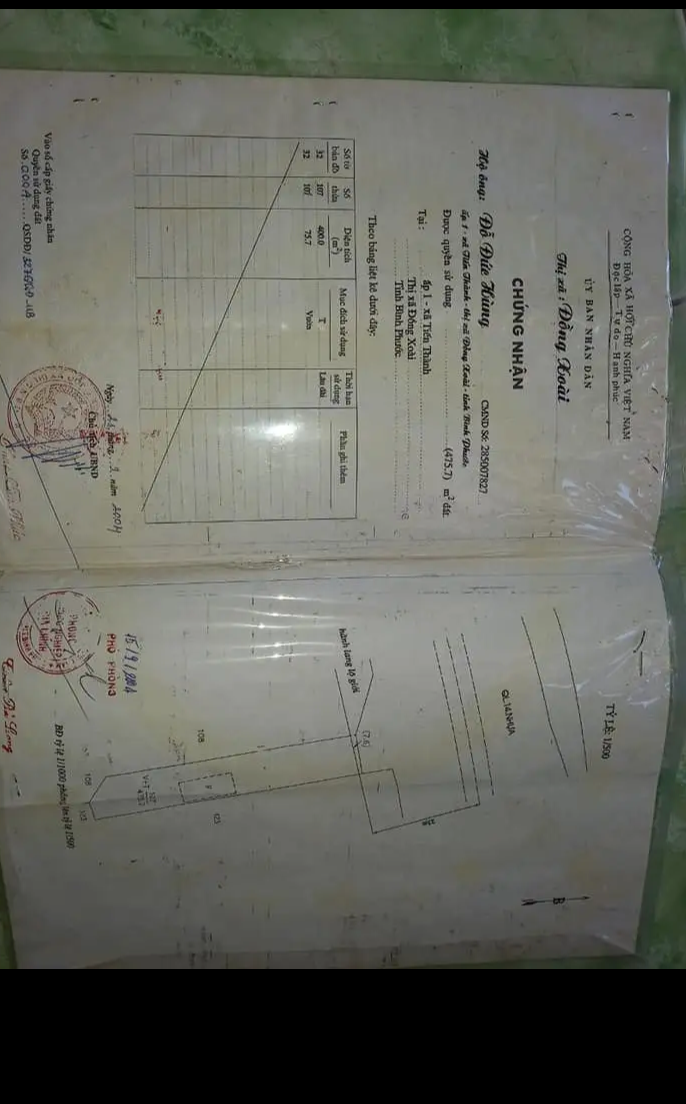 CỘNG HÒA XÃ HỘI CHỦ NGHĨA VIỆT NAM
Độc lập — Tự do — Hạnh phúc
ỦY BAN NHÂN DÂN
Thị xã : Đồng Xoài
CHỨNG NHẬN
Hộ ông: Đỗ Đức Hùng CMND Số: 285007827
ấp 1 - xã Tiến Thành - thị xã Đồng Xoài - tỉnh Bình Phước
Được quyền sử dụng (475.7) m² đất
Tại : ấp 1 - xã Tiến Thành
Thị xã Đồng Xoài
Tỉnh Bình Phước
Theo bảng liệt kê dưới đây:
Số tờ bản đồ Số thửa Diện tích (m²) Mục đích sử dụng Thời hạn sử dụng Phần ghi thêm
32 107 400.0 T Lâu dài
32 107 75.7 Vườn
Ngày tháng năm 2004
Chủ tịch UBND
Vào sổ cấp giấy chứng nhận
Quyền sử dụng đất
Số QSDĐ/
TỶ LỆ: 1/500
B
QL.14.NHỰA
hành lang lộ giới
(7.6)
108
V+T 107
475.7
105
108
BĐ tỷ lệ 1/1000 phóng lên tỷ lệ 1/500
15/9/2004
PHÓ PHÒNG